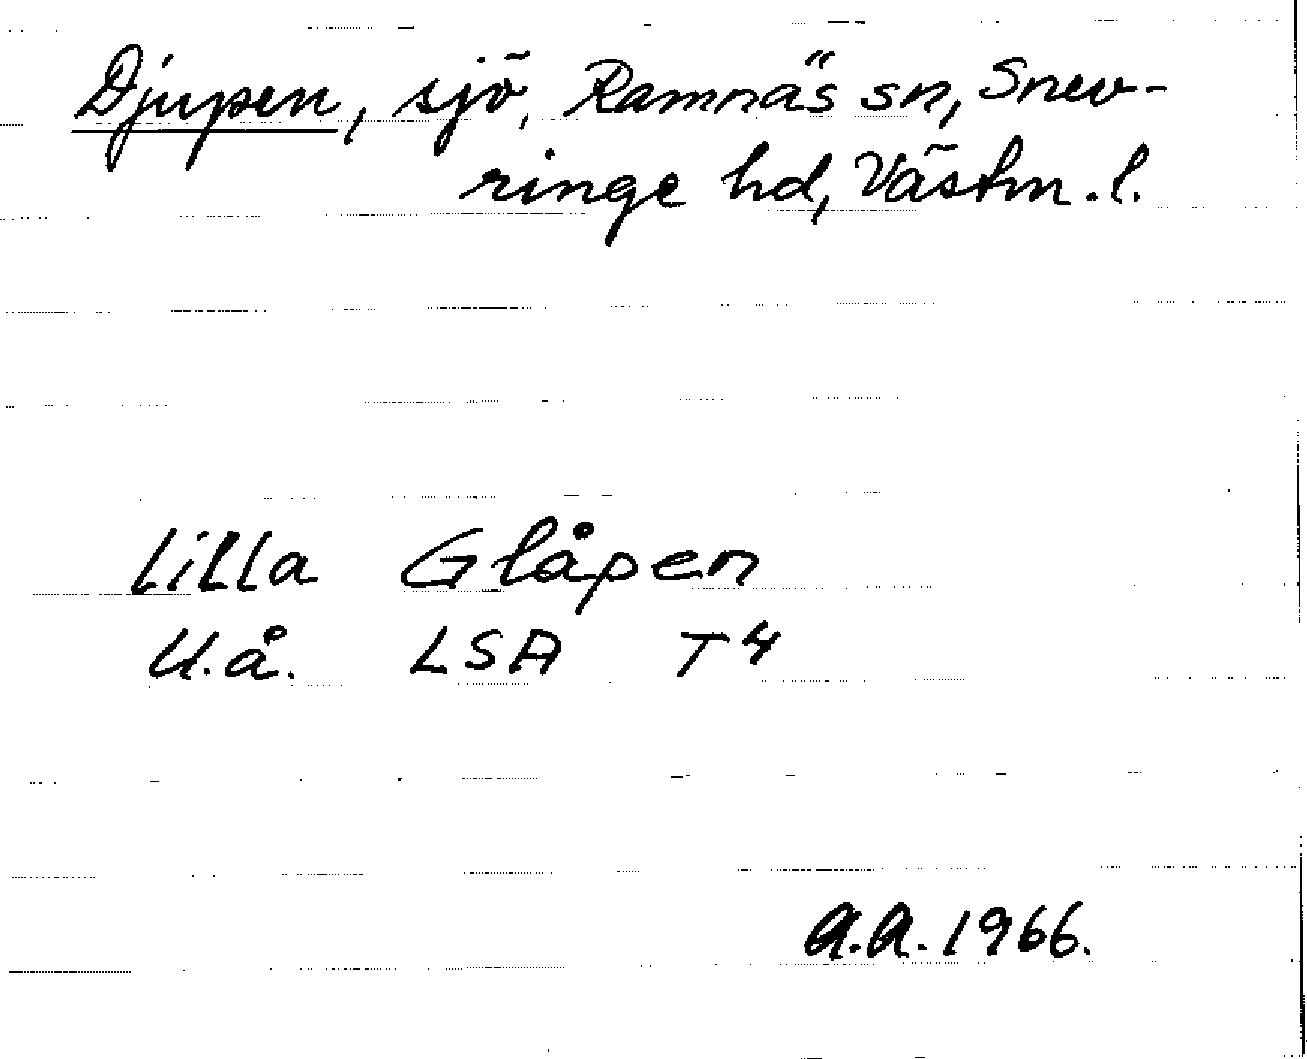 Djupen, sjö, Ramnäs sn, Snev-
ringe hd, Västm. l.
Lilla Glåpen
U.å. LSA T4
A.A. 1966.